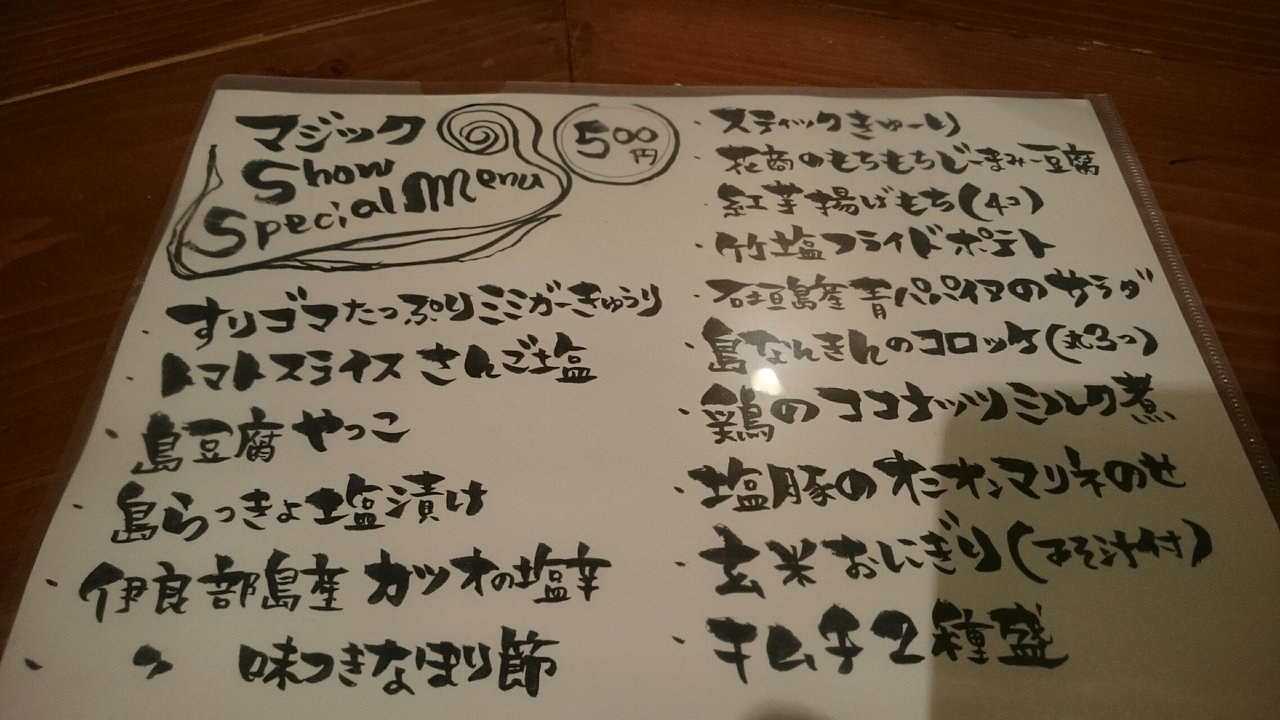 マジック
Show
Special Menu
500
円
・すりゴマたっぷりミミガーきゅうり
・トマトスライスさんご塩
・島豆腐やっこ
・島らっきょ塩漬け
・伊良部島産カツオの塩辛
・〃 味つきなまり節
・スティックきゅーり
・花商のもちもちじーまみー豆腐
・紅芋揚げもち(4コ)
・竹塩フライドポテト
・石垣島産青パパイヤのサラダ
・島なんきんのコロッケ(丸3つ)
・鶏のココナッツミルク煮
・塩豚のオニオンマリネのせ
・玄米おにぎり(みそ汁付)
・キムチ2種盛